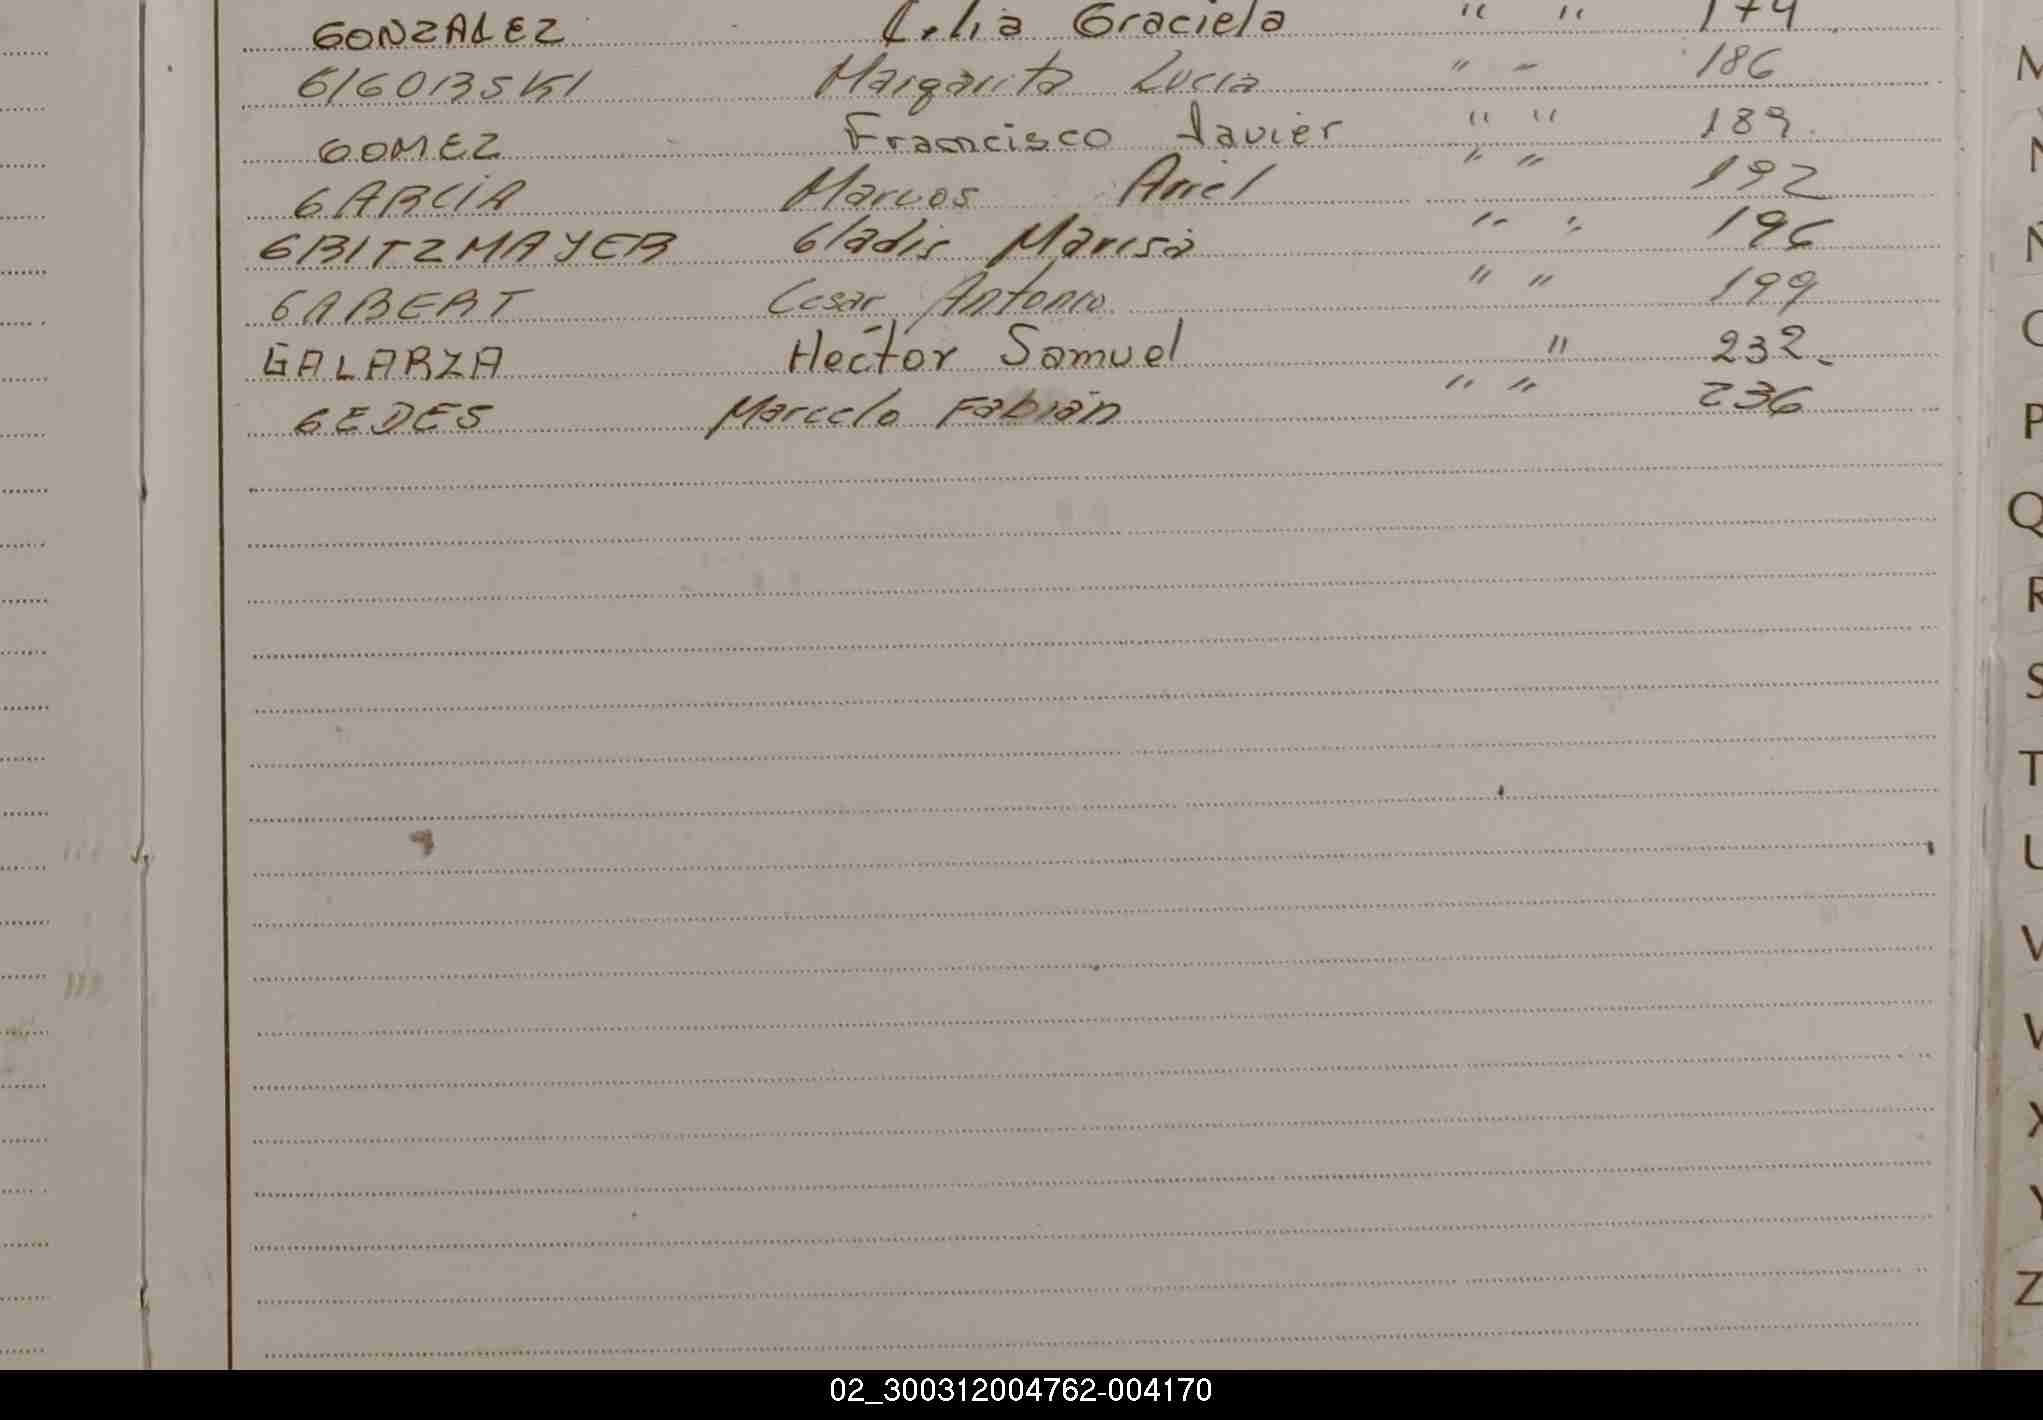 GONZALEZ Celia Graciela " " 174
GIGORSKI Margarita Lucia " " 186
GOMEZ Francisco Javier " " 189
GARCIA Marcos Ariel " " 192
GRITZMAYER Gladis Marisa " " 196
GABERT Cesar Antonio " " 199
GALARZA Hector Samuel " 232
GEDES Marcelo Fabian " " 236
M
N
Ñ
O
P
Q
R
S
T
U
V
W
X
Y
Z
02_300312004762-004170